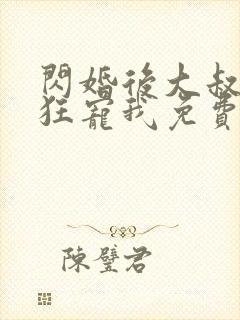 閃婚後大叔
狂寵我免費
陳璧君